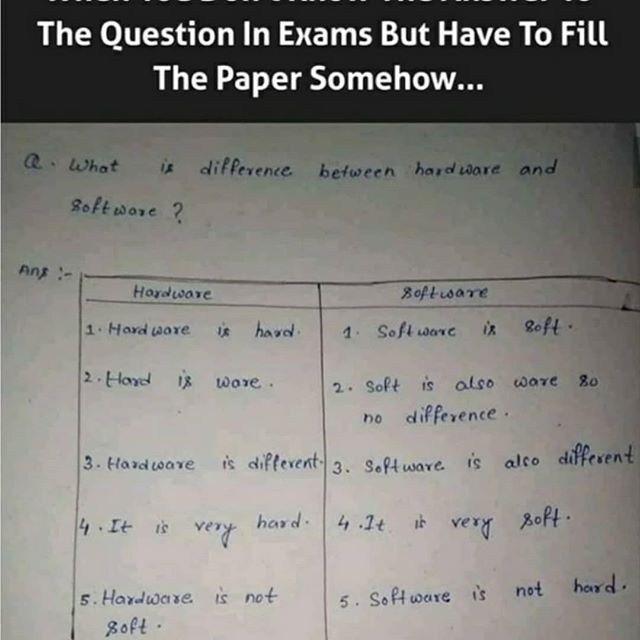 The Question In Exams But Have To Fill
The Paper Somehow...
Q. What is difference between hardware and
Software ?
Ans :-
Hardware
Software
1. Hardware is hard.
1. Software is soft.
2. Hard is ware.
2. Soft is also ware so
no difference.
3. Hardware is different.
3. Software is also different
4. It is very hard.
4. It is very soft.
5. Hardware is not
soft.
5. Software is not hard.